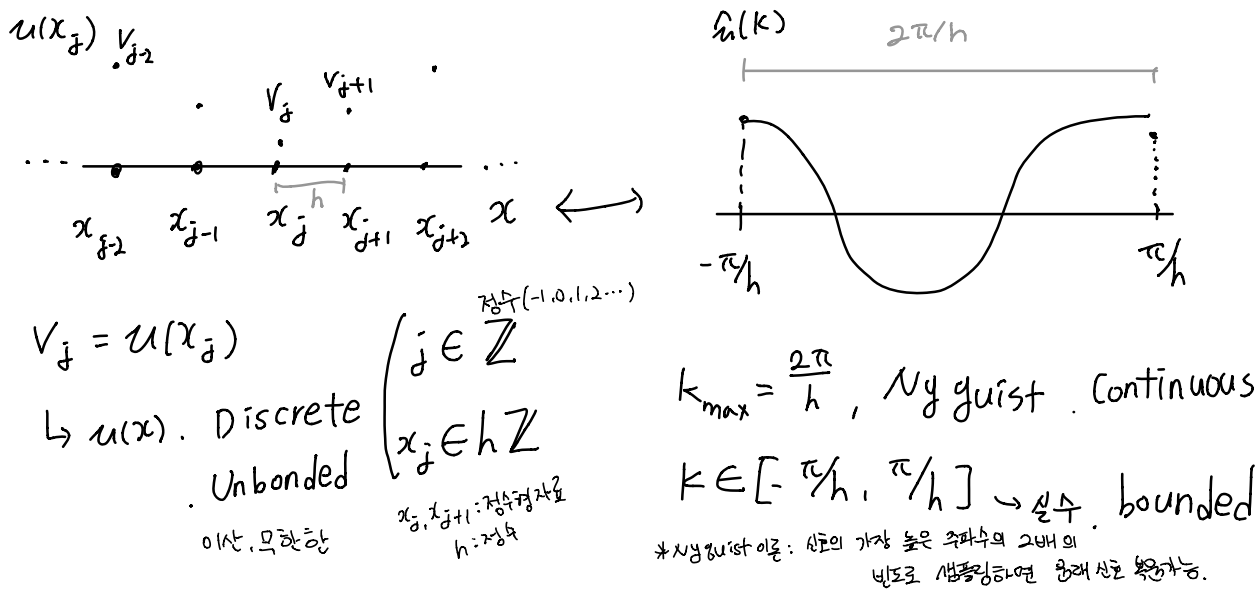 u(x_j) V_{j-2}
V_j V_{j+1}
... h ...
x_{j-2} x_{j-1} x_j x_{j+1} x_{j+2} x
V_j = u(x_j)
↳ u(x). Discrete
. Unbonded
이산, 무한함
정수(-1,0,1,2…)
j ∈ ℤ
x_j ∈ hℤ
x_j, x_{j+1}: 정수형자료
h: 정수
û(k)
2π/h
-π/h π/h
k_{max} = 2π/h, Nyguist . Continuous
k ∈ [-π/h, π/h] → 실수 . bounded
*Nyguist 이론: 신호의 가장 높은 주파수의 2배의
빈도로 샘플링하면 원래 신호 복원가능.